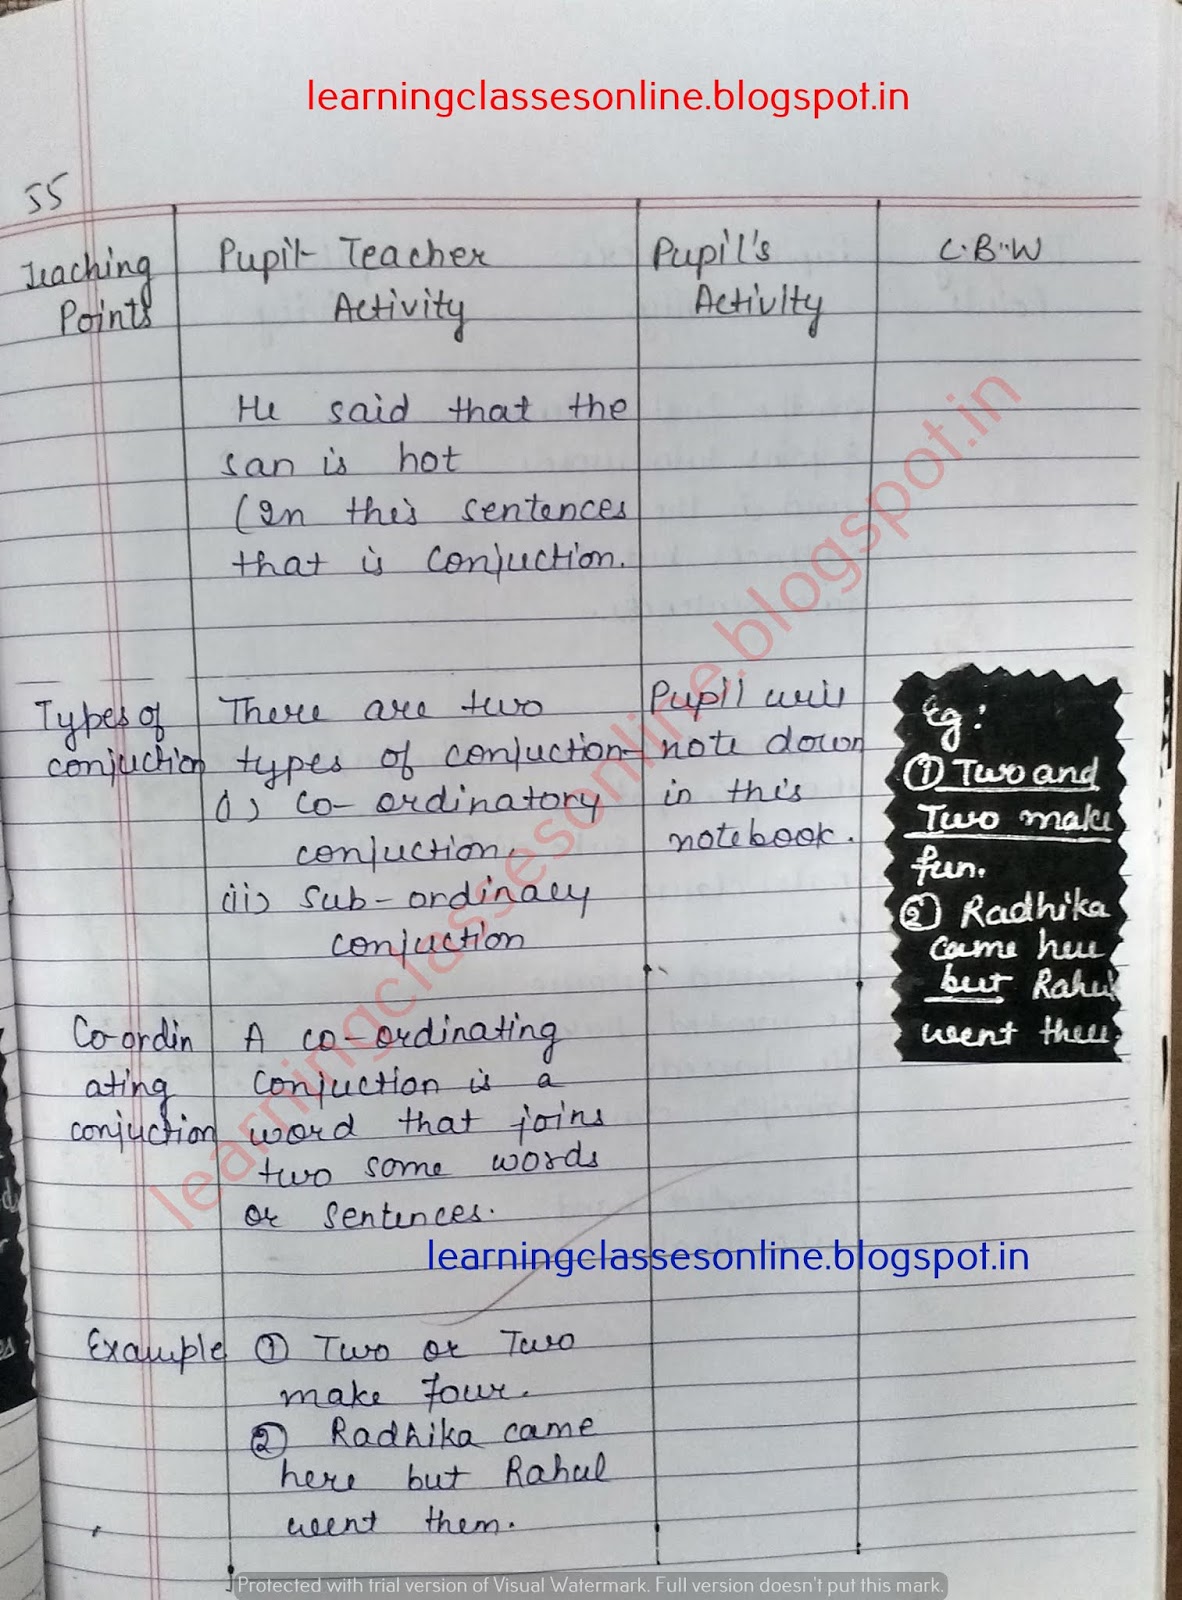 learningclassesonline.blogspot.in
55
Teaching
Points
Pupil- Teacher
Activity
Pupil's
Activity
C.B.W
He said that the
san is hot
(In this sentences
that is conjuction.
Types of
conjuction
There are two
types of conjuction-
(i) co- ordinatory
conjuction.
(ii) Sub-ordinacy
conjuction
Pupil will
note down
in this
notebook.
eg:
① Two and
Two make
fun.
② Radhika
came here
but Rahul
went there.
Co-ordin
ating
conjuction
A co-ordinating
conjuction is a
word that joins
two some words
or sentences.
learningclassesonline.blogspot.in
Example
① Two or Two
make four.
② Radhika came
here but Rahul
went them.
learningclassesonline.blogspot.in
Protected with trial version of Visual Watermark. Full version doesn't put this mark.